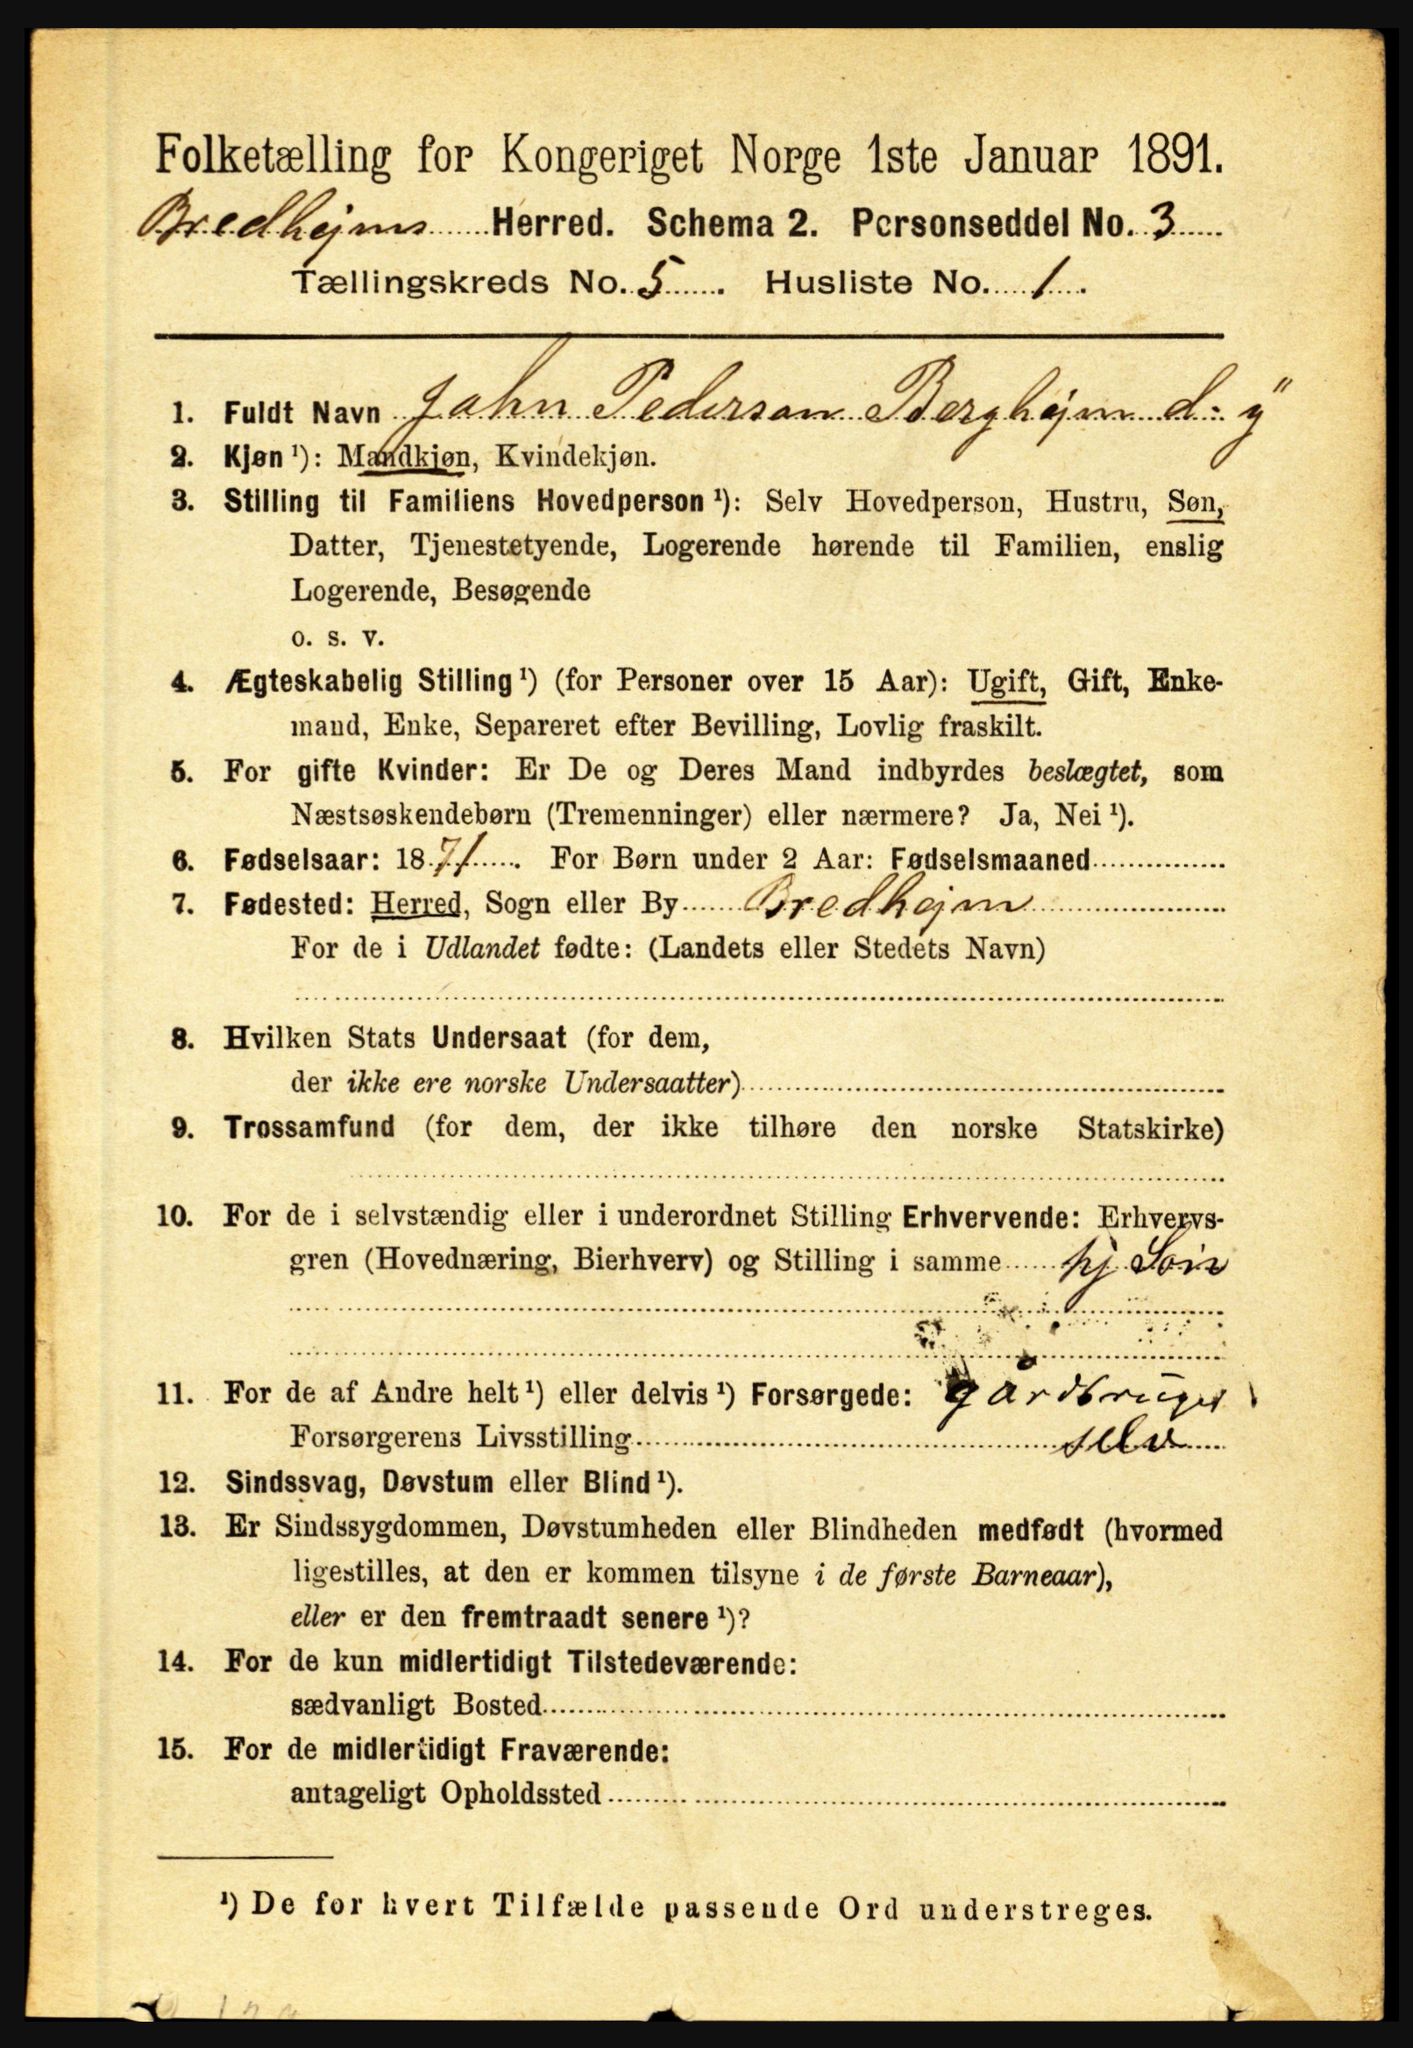 Folketælling for Kongeriget Norge 1ste Januar 1891.
Bredhejms Herred. Schema 2. Personseddel No. 3
Tællingskreds No. 5. Husliste No. 1.
1. Fuldt Navn John Pederson Berghejm d: y"
2. Kjøn ¹): Mandkjøn, Kvindekjøn.
3. Stilling til Familiens Hovedperson ¹): Selv Hovedperson, Hustru, Søn,
Datter, Tjenestetyende, Logerende hørende til Familien, enslig
Logerende, Besøgende
o. s. v.
4. Ægteskabelig Stilling ¹) (for Personer over 15 Aar): Ugift, Gift, Enke-
mand, Enke, Separeret efter Bevilling, Lovlig fraskilt.
5. For gifte Kvinder: Er De og Deres Mand indbyrdes beslægtet, som
Næstsøskendebørn (Tremenninger) eller nærmere? Ja, Nei ¹).
6. Fødselsaar: 1871. For Børn under 2 Aar: Fødselsmaaned
7. Fødested: Herred, Sogn eller By Bredhejm
For de i Udlandet fødte: (Landets eller Stedets Navn)
8. Hvilken Stats Undersaat (for dem,
der ikke ere norske Undersaatter)
9. Trossamfund (for dem, der ikke tilhøre den norske Statskirke)
10. For de i selvstændig eller i underordnet Stilling Erhvervende: Erhvervs-
gren (Hovednæring, Bierhverv) og Stilling i samme hj Søn
11. For de af Andre helt ¹) eller delvis ¹) Forsørgede: gårdbruger
Forsørgerens Livsstilling selv
12. Sindssvag, Døvstum eller Blind ¹).
13. Er Sindssygdommen, Døvstumheden eller Blindheden medfødt (hvormed
ligestilles, at den er kommen tilsyne i de første Barneaar),
eller er den fremtraadt senere ¹)?
14. For de kun midlertidigt Tilstedeværende:
sædvanligt Bosted
15. For de midlertidigt Fraværende:
antageligt Opholdssted
¹) De for hvert Tilfælde passende Ord understreges.